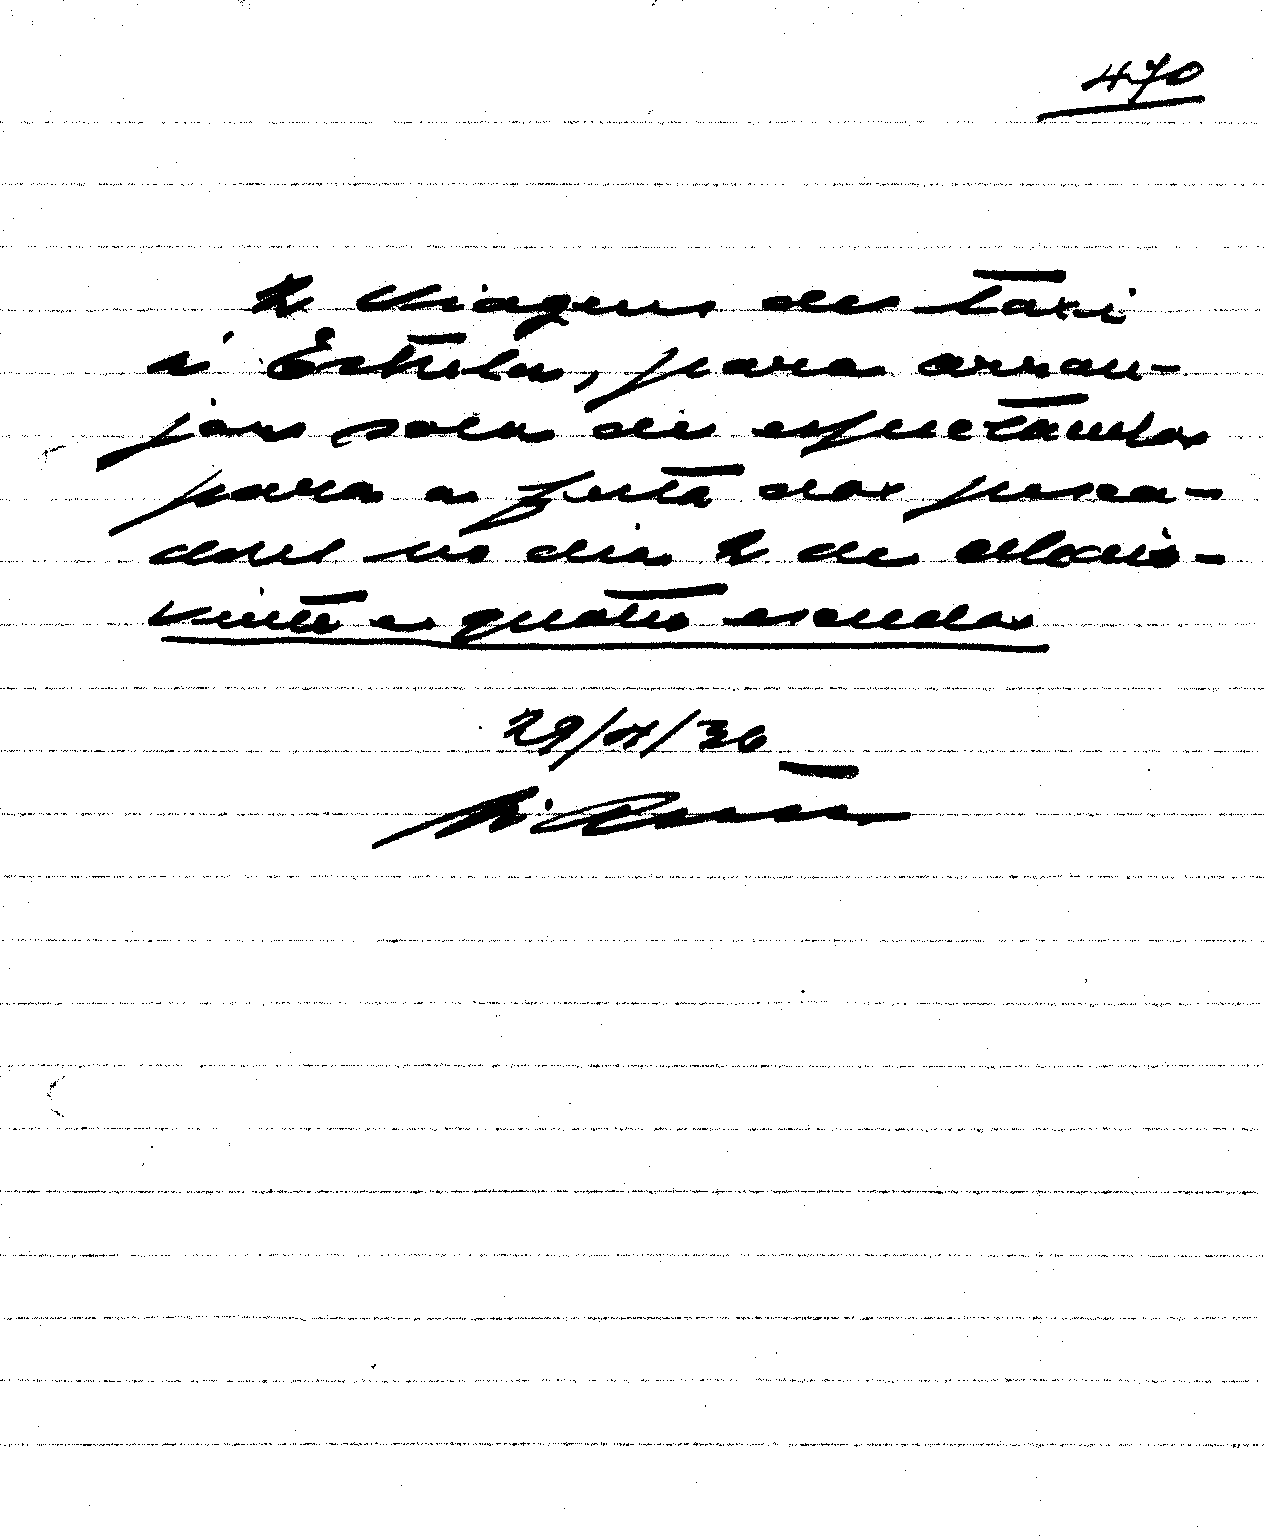 470
2 viagens de taxi
á Estrela, para arran-
jar sala de espectaculos
para a festa dos pesca-
dores no dia 2 de
vinte e quatro escudos
29/4/36